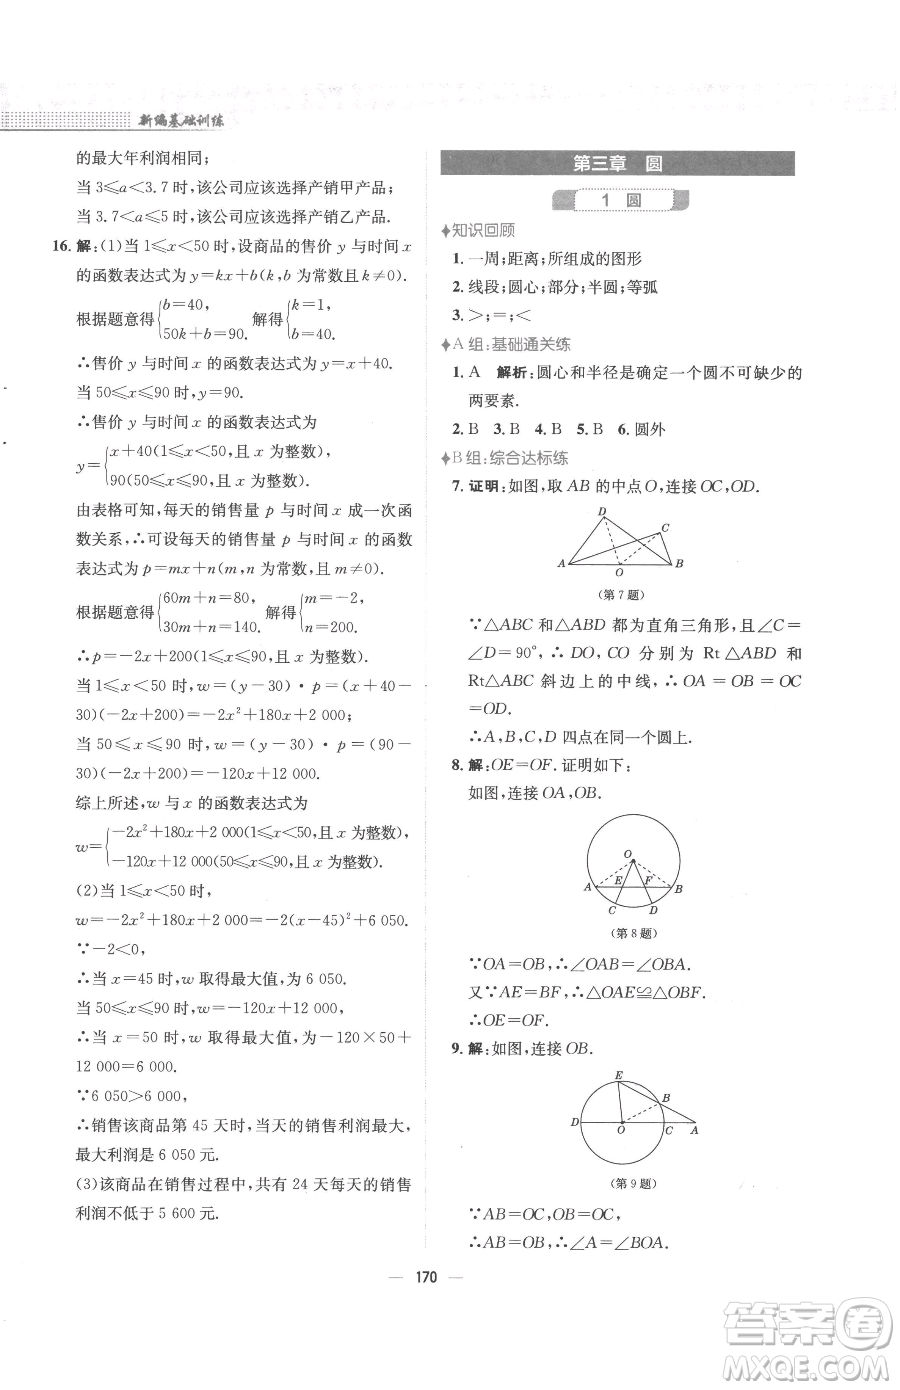 新编基础训练
的最大年利润相同;
当 3≤a<3.7 时,该公司应该选择产销甲产品;
当 3.7<a≤5 时,该公司应该选择产销乙产品.
16. 解:(1)当 1≤x<50 时,设商品的售价 y 与时间 x
的函数表达式为 y=kx+b(k,b 为常数且 k≠0).
根据题意得{b=40, 50k+b=90. 解得{k=1, b=40.
∴售价 y 与时间 x 的函数表达式为 y=x+40.
当 50≤x≤90 时,y=90.
∴售价 y 与时间 x 的函数表达式为
y={x+40(1≤x<50,且 x 为整数), 90(50≤x≤90,且 x 为整数).
由表格可知,每天的销售量 p 与时间 x 成一次函
数关系,∴可设每天的销售量 p 与时间 x 的函数
表达式为 p=mx+n(m,n 为常数,且 m≠0).
根据题意得{60m+n=80, 30m+n=140. 解得{m=-2, n=200.
∴p=-2x+200(1≤x≤90,且 x 为整数).
当 1≤x<50 时,w=(y-30)·p=(x+40-
30)(-2x+200)=-2x²+180x+2 000;
当 50≤x≤90 时,w=(y-30)·p=(90-
30)(-2x+200)=-120x+12 000.
综上所述,w 与 x 的函数表达式为
w={-2x²+180x+2 000(1≤x<50,且 x 为整数), -120x+12 000(50≤x≤90,且 x 为整数).
(2)当 1≤x<50 时,
w=-2x²+180x+2 000=-2(x-45)²+6 050.
∵-2<0,
∴当 x=45 时,w 取得最大值,为 6 050.
当 50≤x≤90 时,w=-120x+12 000.
∴当 x=50 时,w 取得最大值,为-120×50+
12 000=6 000.
∵6 050>6 000,
∴销售该商品第 45 天时,当天的销售利润最大,
最大利润是 6 050 元.
(3)该商品在销售过程中,共有 24 天每天的销售
利润不低于 5 600 元.
第三章 圆
1 圆
知识回顾
1. 一周;距离;所组成的图形
2. 线段;圆心;部分;半圆;等弧
3. >;=;<
A 组:基础通关练
1. A 解析:圆心和半径是确定一个圆不可缺少的
两要素.
2. B 3. B 4. B 5. B 6. 圆外
B 组:综合达标练
7. 证明:如图,取 AB 的中点 O,连接 OC,OD.
D
C
A
O
B
(第 7 题)
∵△ABC 和△ABD 都为直角三角形,且∠C=
∠D=90°,∴DO,CO 分别为 Rt△ABD 和
Rt△ABC 斜边上的中线,∴OA=OB=OC
=OD.
∴A,B,C,D 四点在同一个圆上.
8. 解:OE=OF.证明如下:
如图,连接 OA,OB.
O
A
E
F
B
C
D
(第 8 题)
∵OA=OB,∴∠OAB=∠OBA.
又∵AE=BF,∴△OAE≌△OBF.
∴OE=OF.
9. 解:如图,连接 OB.
E
B
D
O
C
A
(第 9 题)
∵AB=OC,OB=OC,
∴AB=OB,∴∠A=∠BOA.
170
答案卷
MXQE.COM